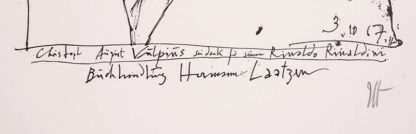 3.10.67.
Christoph August Vulpius sei dank für seinen Rinaldo Rinaldini
Buchhandlung Hermann Laatzen